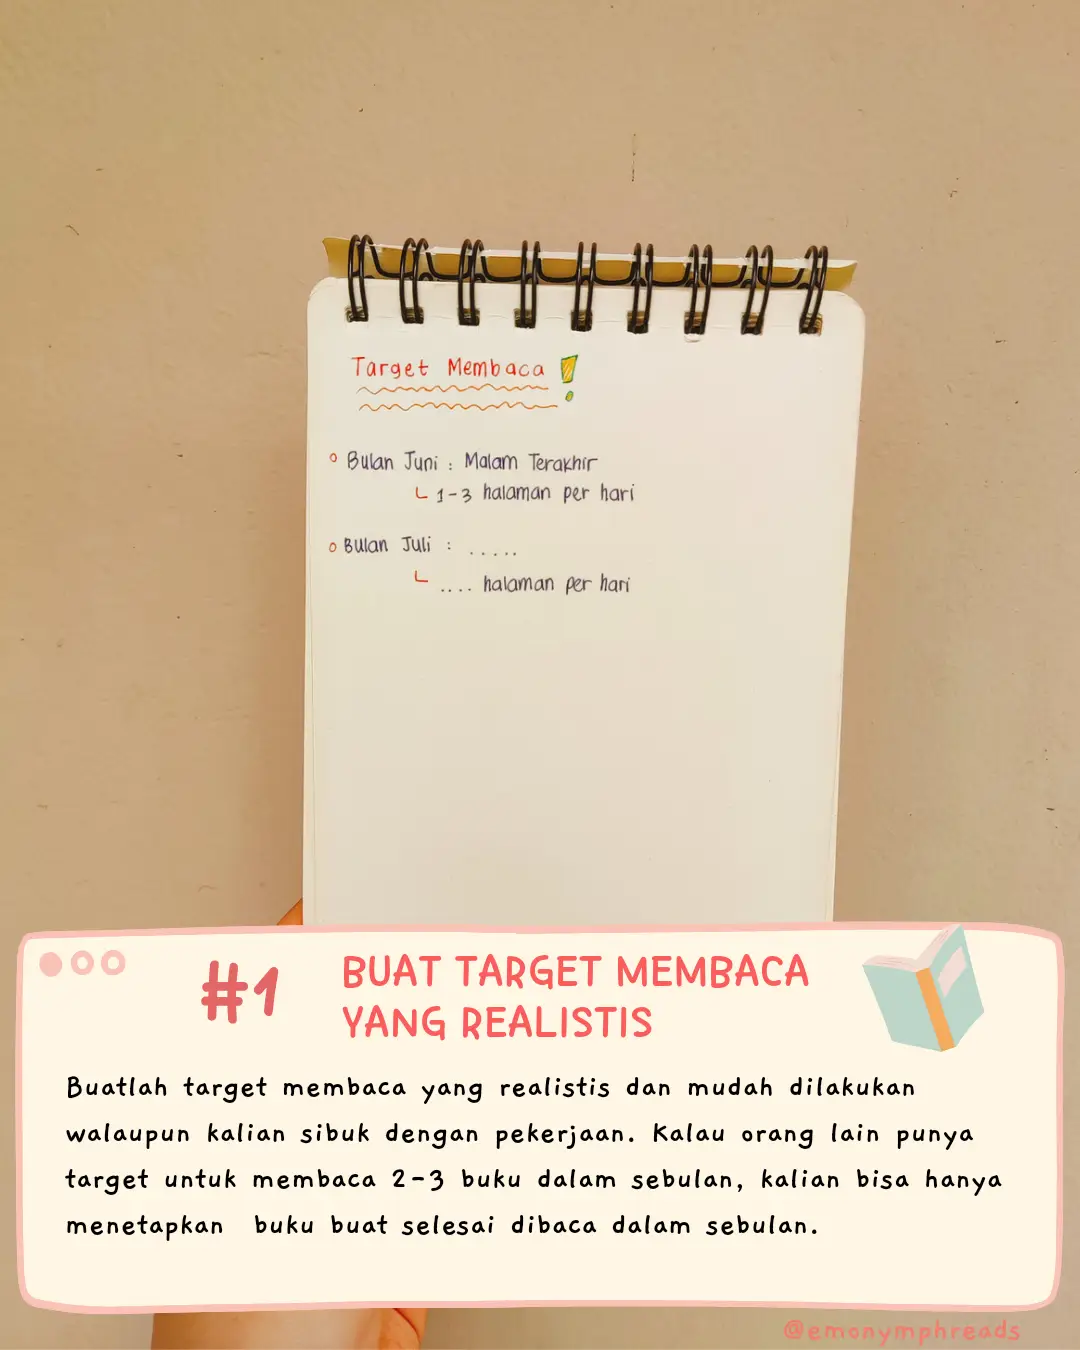 Target Membaca !
Bulan Juni : Malam Terakhir
1-3 halaman per hari
Bulan Juli : .....
.... halaman per hari
#1
BUAT TARGET MEMBACA
YANG REALISTIS
Buatlah target membaca yang realistis dan mudah dilakukan
walaupun kalian sibuk dengan pekerjaan. Kalau orang lain punya
target untuk membaca 2-3 buku dalam sebulan, kalian bisa hanya
menetapkan buku buat selesai dibaca dalam sebulan.
@emonymphreads